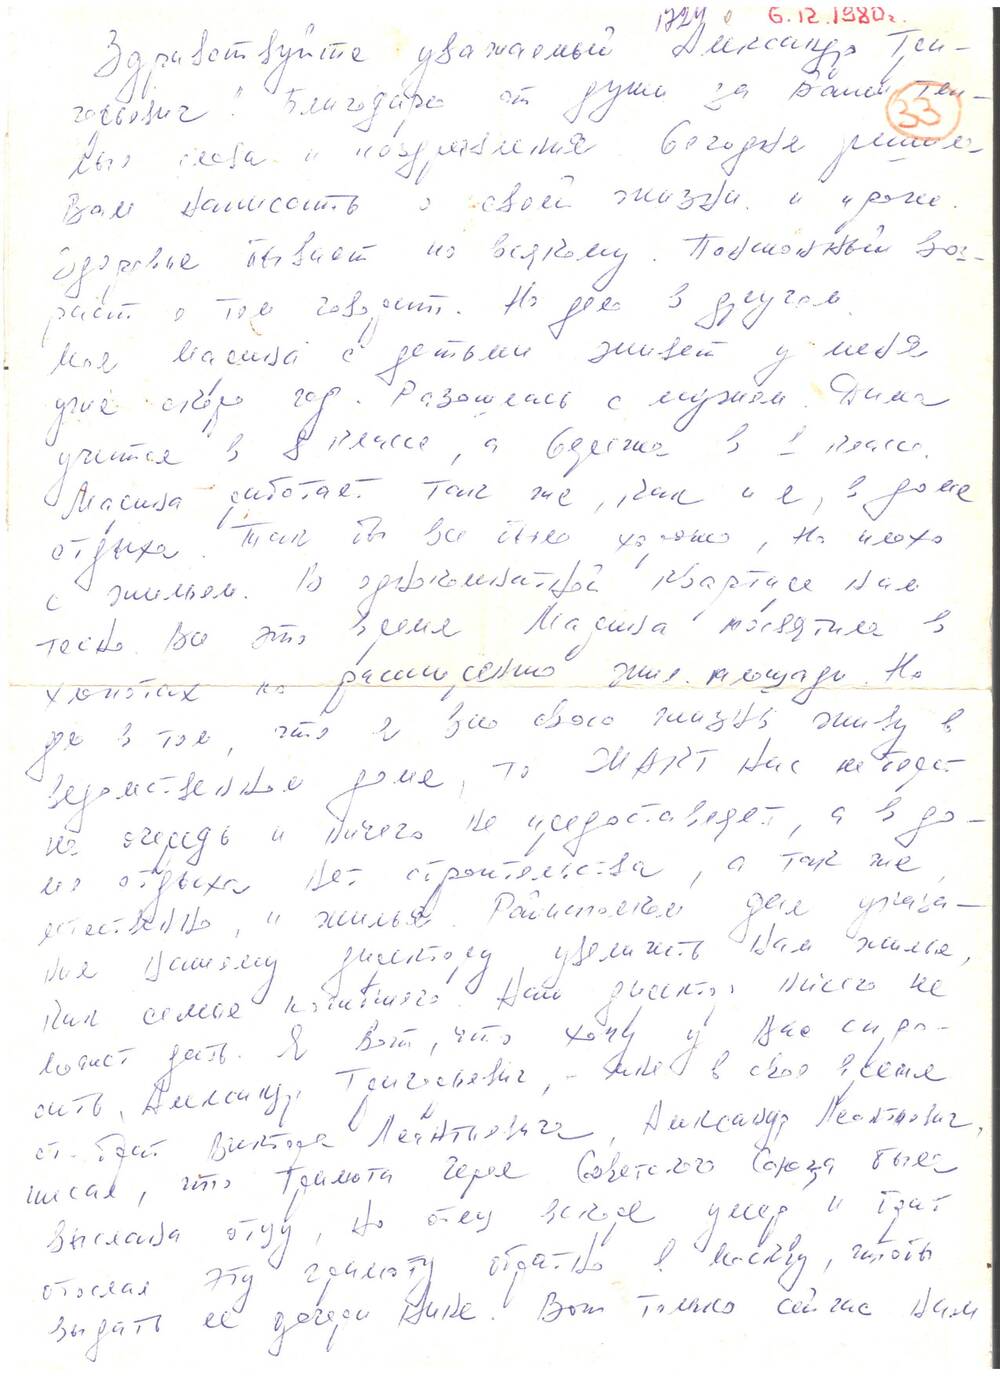 1724 6.12.1980г.
Здравствуйте уважаемый Александр Гри-
горьевич! Благодарю от души за Ваши теп-
33
лые слова и поздравления. Сегодня решила
Вам написать о своей жизни и
Здоровье бывает по всякому. Пожилой воз-
раст о том говорит. Но дело в другом.
Моя с детьми живет у меня
уже скоро год. Разошлась с мужем. Дима
учится в 8 классе, а Сережа в 1 классе.
работает так же, как и я, в доме
отдыха. Так бы все было хорошо, но плохо
с жильем. В однокомнатной квартире нам
тесно. Все это время посвятила в
хлопотах по расширению жил. площади. Но
дело в том, что я всю свою жизнь живу в
ведомственном доме, то ЖАКТ нас не берет
на очередь и ничего не предоставляет, а в до-
ме отдыха нет строительства, а так же,
естественно, и жилья. Райисполком дал указа-
ние нашему директору увеличить нам жилье,
как семье погибшего. Наш директор ничего не
может дать. Я вот, что хочу у Вас спро-
сить, Александр Григорьевич, - мне в свое время
ст. брат Виктора Леонтьевича, Александр Леонтьевич,
писал, что грамота Героя Советского Союза была
выслана отцу, но отец вскоре умер и брат
отослал эту грамоту обратно в Москву, чтобы
выдать ее дочери Нине. Вот только сейчас нам